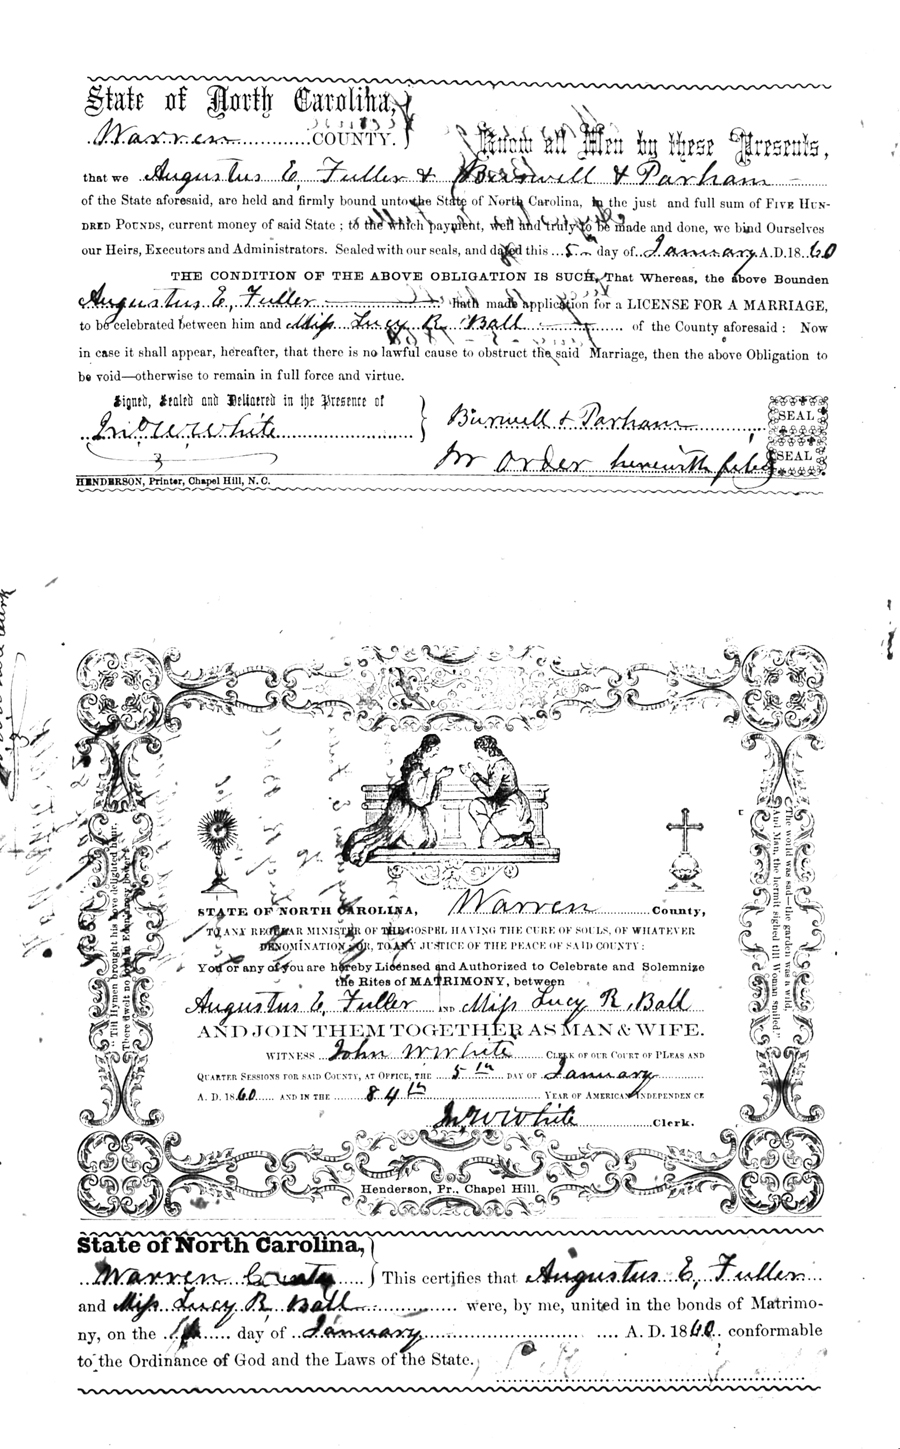 State of North Carolina,
Warren COUNTY.
Know all Men by these Presents,
that we Augustus E, Fuller & Burwell & Parham
of the State aforesaid, are held and firmly bound unto the State of North Carolina, in the just and full sum of FIVE HUN-
DRED POUNDS, current money of said State; to the which payment, well and truly to be made and done, we bind Ourselves
our Heirs, Executors and Administrators. Sealed with our seals, and dated this 5 day of January A.D. 1860
THE CONDITION OF THE ABOVE OBLIGATION IS SUCH, That Whereas, the above Bounden
Augustus E, Fuller hath made application for a LICENSE FOR A MARRIAGE,
to be celebrated between him and Miss Lucy R Ball of the County aforesaid: Now
in case it shall appear, hereafter, that there is no lawful cause to obstruct the said Marriage, then the above Obligation to
be void—otherwise to remain in full force and virtue.
Signed, Sealed and Delivered in the Presence of
Jno W. White
Burwell & Parham
SEAL
pr order herewith filed
SEAL
HENDERSON, Printer, Chapel Hill, N. C.
"Till Hymen brought his love-delighted hour,
There dwelt no joy in Eden's rosy bower."
"The world was sad—the garden was a wild,
And Man, the hermit sighed till Woman smiled."
STATE OF NORTH CAROLINA, Warren County,
TO ANY REGULAR MINISTER OF THE GOSPEL HAVING THE CURE OF SOULS, OF WHATEVER
DENOMINATION, OR, TO ANY JUSTICE OF THE PEACE OF SAID COUNTY:
You or any of you are hereby Licensed and Authorized to Celebrate and Solemnize
the Rites of MATRIMONY, between
Augustus E, Fuller AND Miss Lucy R. Ball
AND JOIN THEM TOGETHER AS MAN & WIFE.
WITNESS John W White CLERK OF OUR COURT OF PLEAS AND
QUARTER SESSIONS FOR SAID COUNTY, AT OFFICE, THE 5th DAY OF January
A. D. 1860 AND IN THE 84th YEAR OF AMERICAN INDEPENDENCE
Jno W White Clerk.
Henderson, Pr., Chapel Hill.
State of North Carolina,
Warren County
This certifies that Augustus E, Fuller
and Miss Lucy R Ball were, by me, united in the bonds of Matrimo-
ny, on the day of January A. D. 1860, conformable
to the Ordinance of God and the Laws of the State.